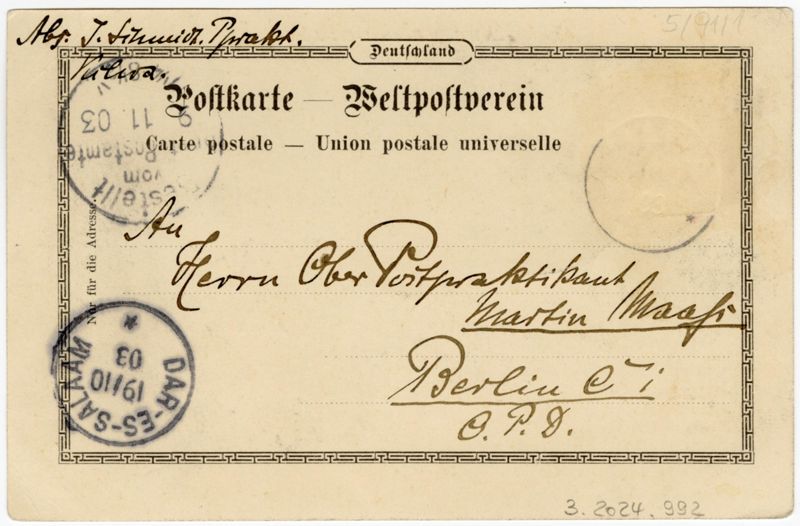 5/9111
Abs. J. Schmidt. Pprakt.
Kilwa.
Deutschland
Postkarte — Weltpostverein
Carte postale — Union postale universelle
Nur für die Adresse.
Bestellt
vom
Postamte
9 11 03
An
Herrn Ober Postpraktikant
Martin Maaß
Berlin C 1
O.P.D.
DAR-ES-SALAAM
19/10
03
*
3.2024.992